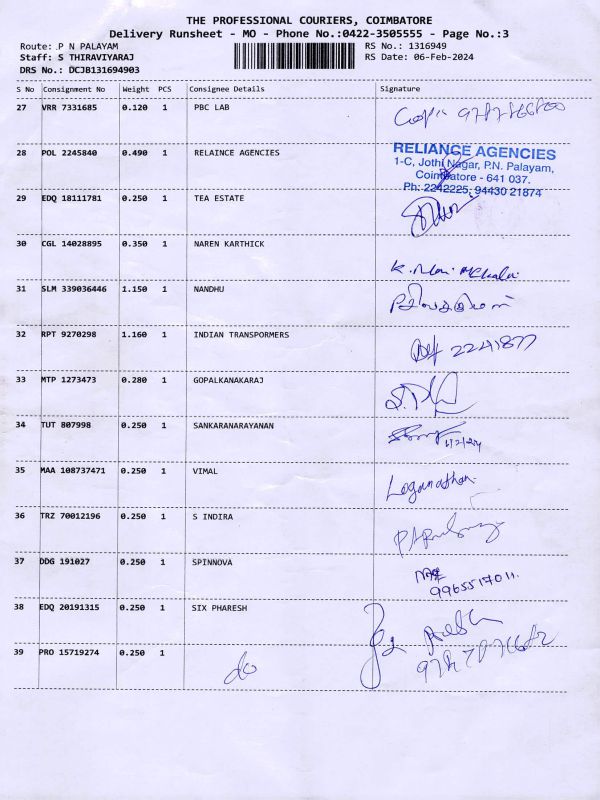 THE PROFESSIONAL COURIERS, COIMBATORE
Delivery Runsheet - MO - Phone No.:0422-3505555 - Page No.:3
Route: P N PALAYAM
RS No.: 1316949
Staff: S THIRAVIYARAJ
RS Date: 06-Feb-2024
DRS No.: DCJB131694903
S No Consignment No Weight PCS Consignee Details Signature
27 VRR 7331685 0.120 1 PBC LAB
28 POL 2245840 0.490 1 RELAINCE AGENCIES
RELIANCE AGENCIES
1-C, Jothi Nagar, P.N. Palayam,
Coimbatore - 641 037.
Ph: 2242225, 94430 21874
29 EDQ 18111781 0.250 1 TEA ESTATE
30 CGL 14028895 0.350 1 NAREN KARTHICK
31 SLM 339036446 1.150 1 NANDHU
32 RPT 9270298 1.160 1 INDIAN TRANSPORMERS
2241877
33 MTP 1273473 0.280 1 GOPALKANAKARAJ
34 TUT 807998 0.250 1 SANKARANARAYANAN
35 MAA 108737471 0.250 1 VIMAL
Loganathan
36 TRZ 70012196 0.250 1 S INDIRA
37 DDG 191027 0.250 1 SPINNOVA
9965517011.
38 EDQ 20191315 0.250 1 SIX PHARESH
39 PRO 15719274 0.250 1 do